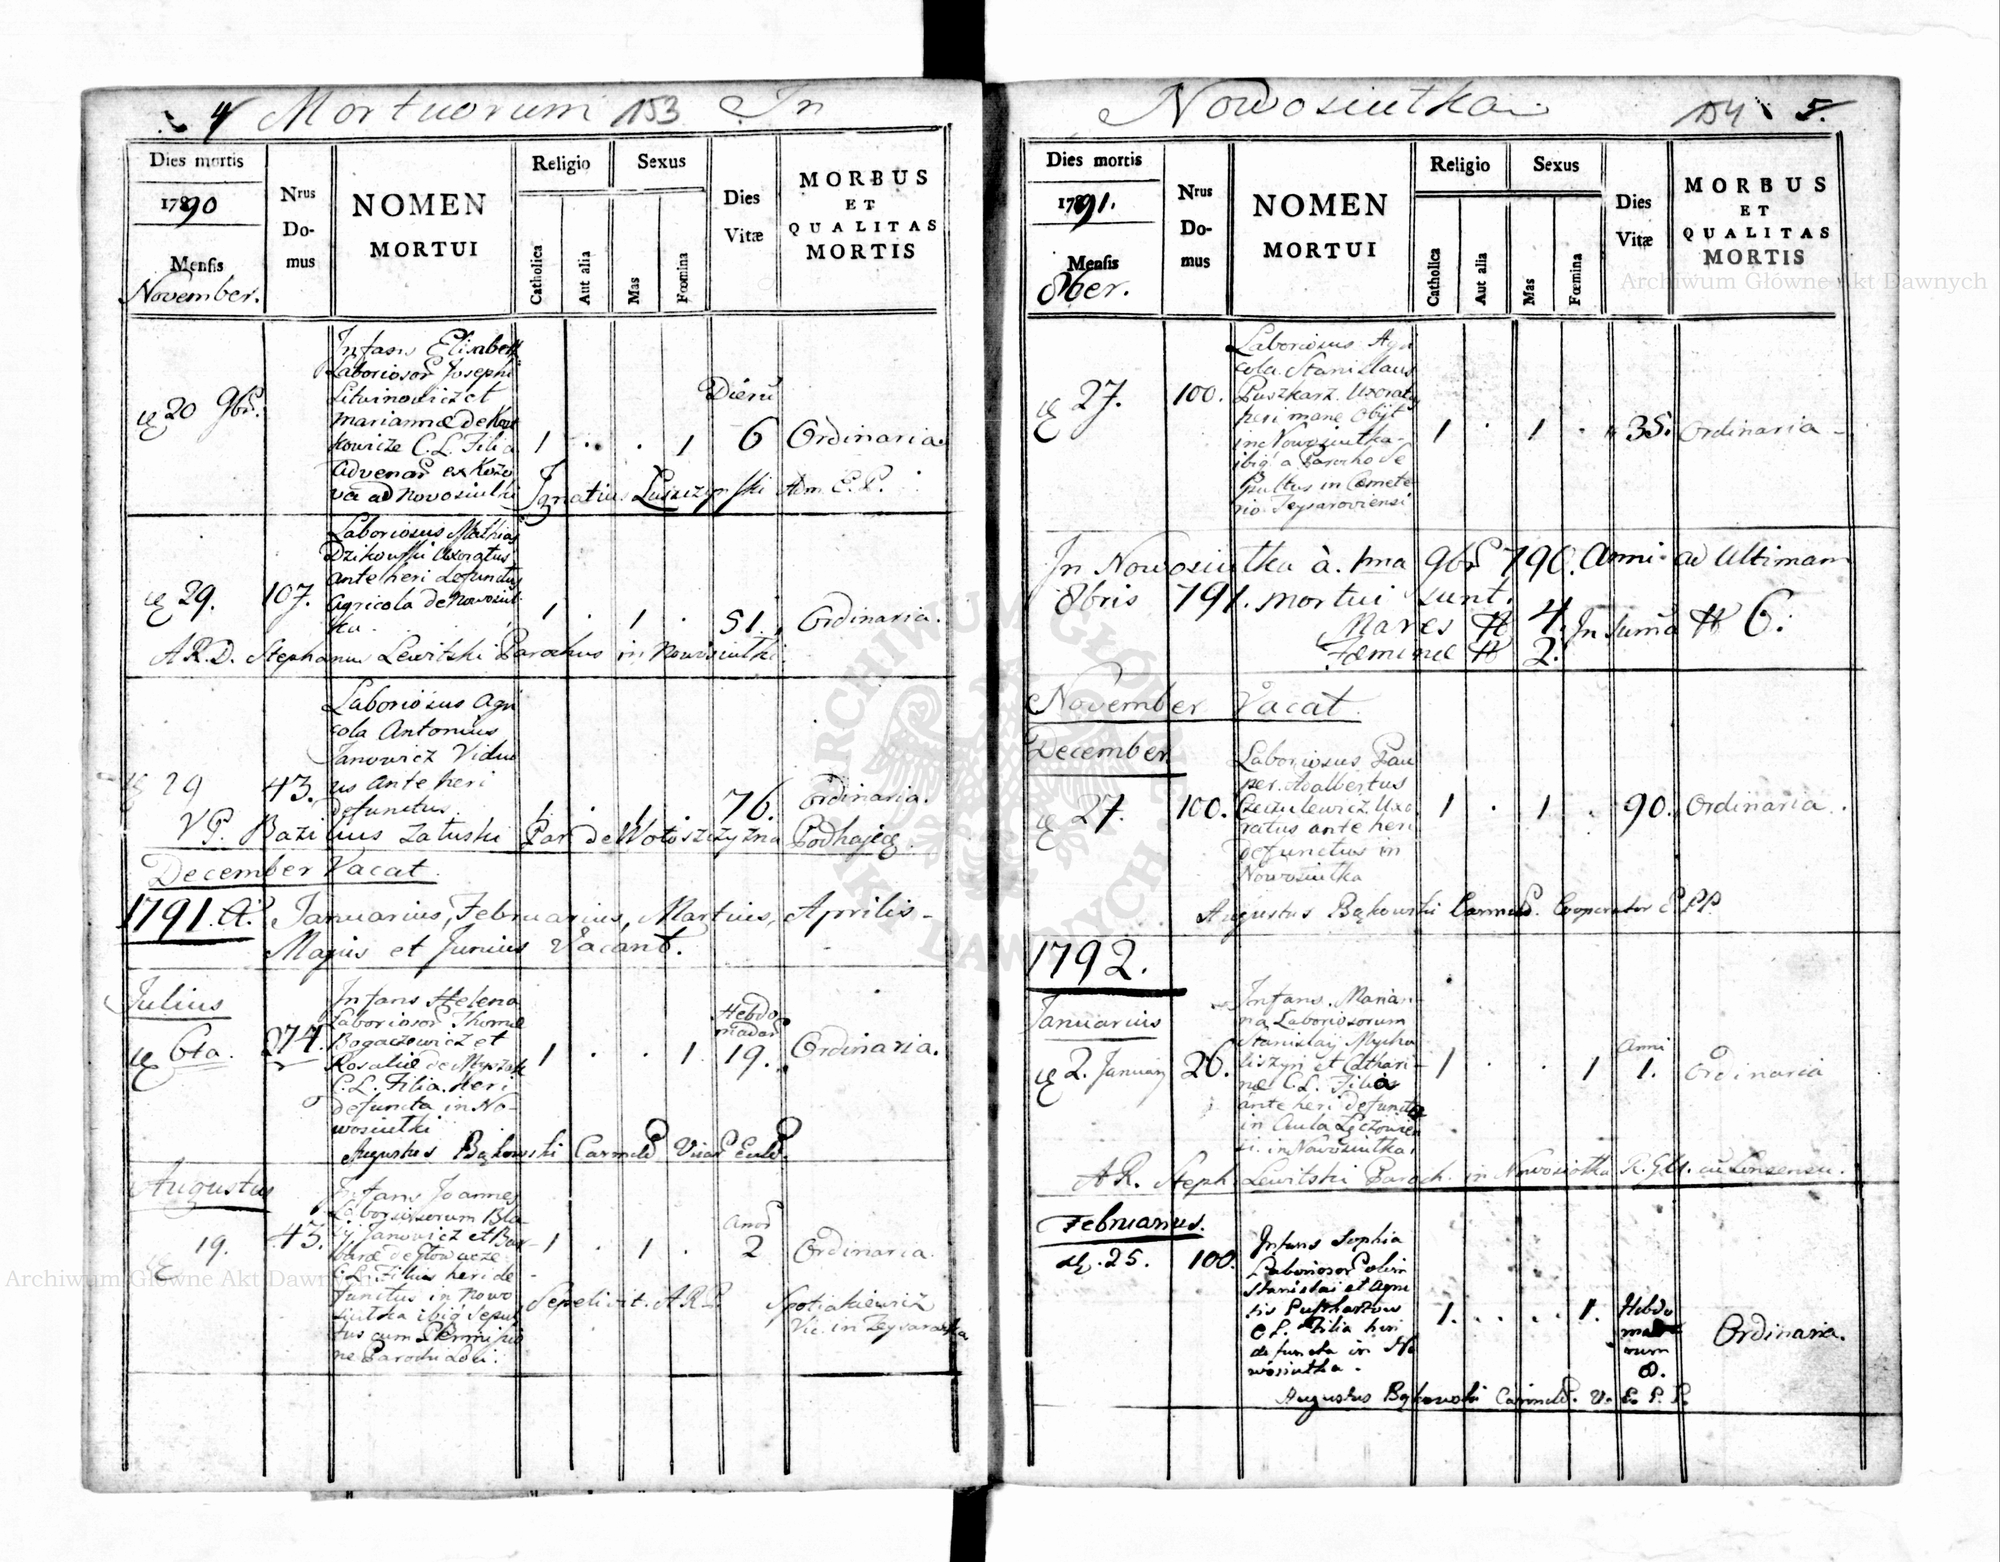 4 Mortuorum 153 In
Dies mortis
1790
Mensis
November.
Nrus
Do-
mus
NOMEN
MORTUI
Religio
Catholica
Aut alia
Sexus
Mas
Fœmina
Dies
Vitæ
MORBUS
ET
QUALITAS
MORTIS
20 9br.
Infans Elisabeth
Laboriosor Josephi
Litwinowicz et
Mariannæ de
kowicze C. L. Filia
advenar ex Kozo
va ad Novosiutki
1 . . 1
Dierū
6
Ordinaria
Ignatius Luszczynski Adm. E. P.
29.
107.
Laboriosus Mathias
Dzikowski Uxoratus
ante heri defunctus
Agricola de Nowosiut
ka.
1 . 1 .
51.
Ordinaria.
A.R.D. Stephanus Lewitski Parochus in Nowosiutki.
29
43.
Laboriosus Agri
cola Antonius
Janowicz Vidu
us ante heri
defunctus.
1 . 1 .
76.
Ordinaria.
VP. Bazilius Zatuski Par de Wołoszczyzna Podhajec.
December Vacat.
1791. A. Januarius, Februarius, Martius, Aprilis
Majus et Junius Vacant.
Julius
6ta.
274.
Infans Helena
Laboriosor Thomæ
Bogaczewicz et
Rosaliæ de
C. L. Filia heri
defuncta in No-
wosiutki
1 . . 1
Hebdo
madar
19.
Ordinaria.
Augustus Bąkowski Carmel.
Augustus
19.
43.
Infans Joannes
Laboriosorum Bla
ij Janowicz et Bar
baræ de Głowacze
C. L. Filius heri de
functus in Nowo
siutka ibiq sepul
tus cum Permissio
ne Parochi Loci.
1 . 1 .
Anor
2
Ordinaria.
Sepelivit A R P.
Vic. in
Nowosiutka 154 5.
Dies mortis
1791.
Mensis
8ber.
Nrus
Do-
mus
NOMEN
MORTUI
Religio
Catholica
Aut alia
Sexus
Mas
Fœmina
Dies
Vitæ
MORBUS
ET
QUALITAS
MORTIS
27.
100.
Laboriosus Agri
cola Stanislaus
Puszkarz Uxoratus
heri mane obijt
in Nowosiutka
ibiq a Parocho se
pultus in Cœmete
rio Teysaroviensi
1 . 1 .
35.
Ordinaria
In Nowosiutka à 1ma 9br 790. Anni ad Ultimam
8bris 791. mortui sunt.
Mares # 4.
Fœminæ # 2.
In Sumā # 6.
November Vacat.
December
27.
100.
Laboriosus Pau
per Adalbertus
Uxo
ratus ante heri
defunctus in
Nowosiutka
1 . 1 .
90.
Ordinaria.
Augustus Bąkowski Carmel. Cooperator E. PP.
1792.
Januarius
2. Januarij
26.
Infans Marian
na Laboriosorum
Stanislaij Mycha
liszyn et Cathari
næ C. L. Filia
ante heri defuncta
in Aula
si. in Nowosiutka
1 . . 1
Anni
1.
Ordinaria
A R. Steph. Lewitski Paroch. in Nowosiotka R. G. U. cu Consensu.
Februarius.
25.
100.
Infans Sophia
Laboriosor
Stanislai et Agne
tis
C L. Filia heri
defuncta in No
wosiutka.
1. . . 1.
Hebdo
mad
arum
8.
Ordinaria.
Augustus Bąkowski Carmel. V. E. P. P.
Archiwum Główne Akt Dawnych
Archiwum Główne Akt Dawnych
ARCHIWUM GŁÓWNE AKT DAWNYCH